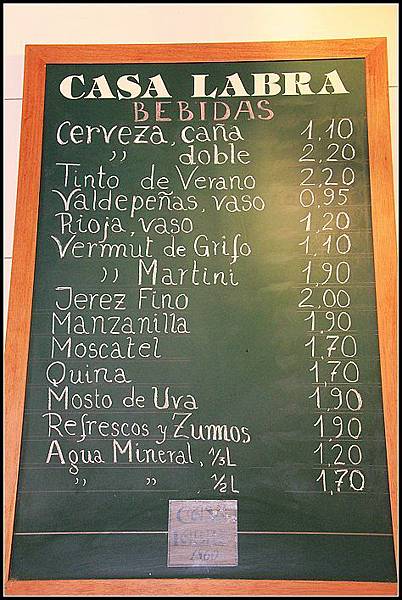 CASA LABRA
BEBIDAS
Cerveza, caña 1,10
,, doble 2,20
Tinto de Verano 2,20
Valdepeñas, vaso 0,95
Rioja, vaso 1,20
Vermut de Grifo 1,10
,, Martini 1,90
Jerez Fino 2,00
Manzanilla 1,90
Moscatel 1,70
Quina 1,70
Mosto de Uva 1,90
Refrescos y Zumos 1,90
Agua Mineral, 1/3L 1,20
,, ,, 1/2L 1,70
CASA
LABRA
1860